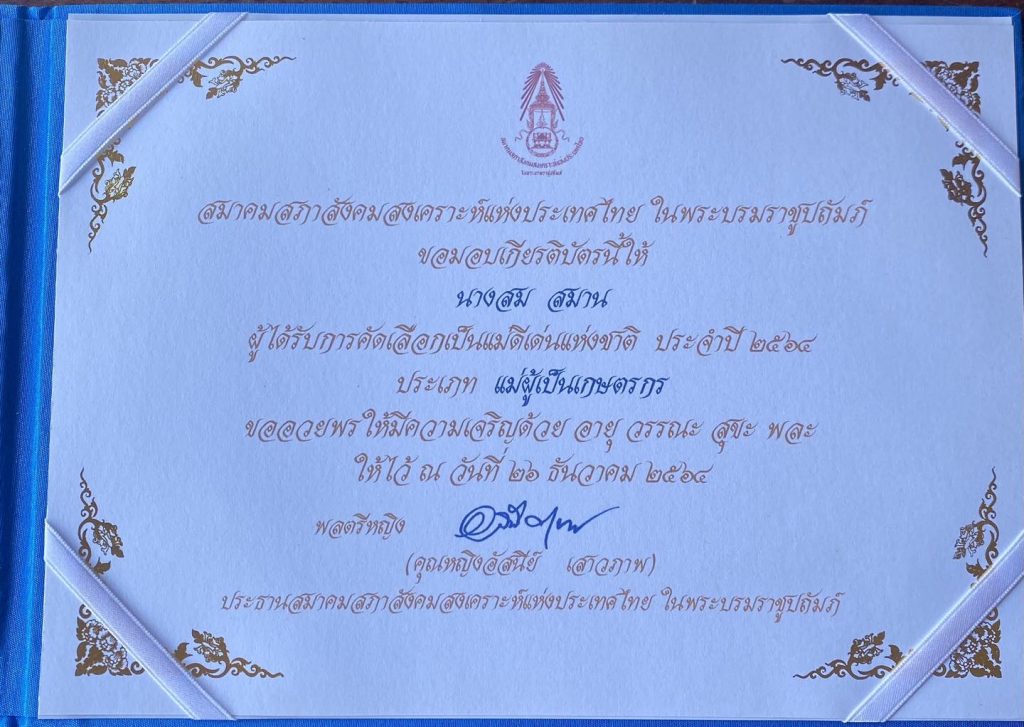 สมาคมสภาสังคมสงเคราะห์แห่งประเทศไทย
ในพระบรมราชูปถัมภ์
สมาคมสภาสังคมสงเคราะห์แห่งประเทศไทย ในพระบรมราชูปถัมภ์
ขอมอบเกียรติบัตรนี้ให้
นางสม สมาน
ผู้ได้รับการคัดเลือกเป็นแม่ดีเด่นแห่งชาติ ประจำปี ๒๕๖๔
ประเภท แม่ผู้เป็นเกษตรกร
ขออวยพรให้มีความเจริญด้วย อายุ วรรณะ สุขะ พละ
ให้ไว้ ณ วันที่ ๒๖ ธันวาคม ๒๕๖๔
พลตรีหญิง
(คุณหญิงอัสนีย์ เสาวภาพ)
ประธานสมาคมสภาสังคมสงเคราะห์แห่งประเทศไทย ในพระบรมราชูปถัมภ์